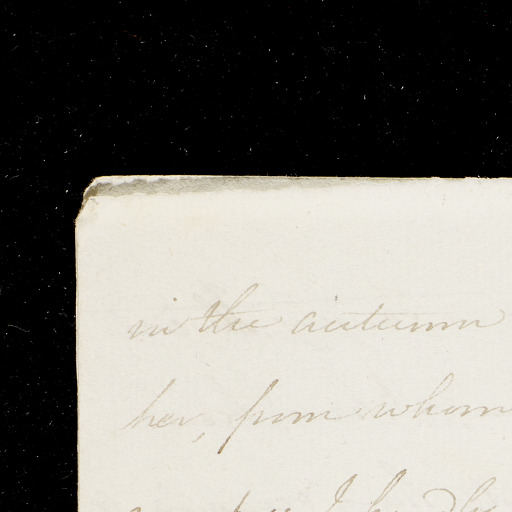 in the autumn
her, from whom